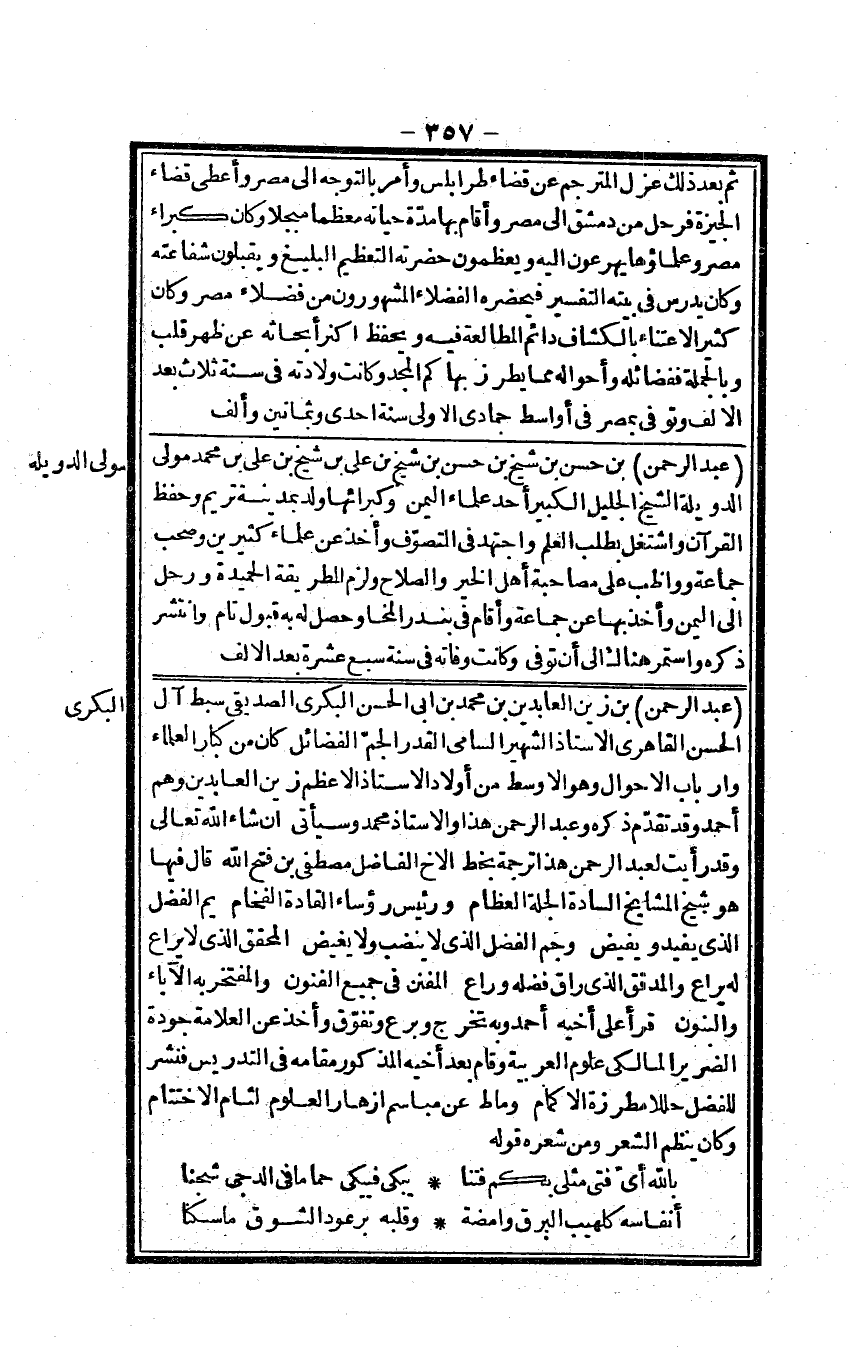 – ٣٥٧ –
ثم بعد ذلك عزل المترجم عن قضاء طرابلس وأمر بالتوجه الى مصر وأعطى قضاء
الجيزة فرحل من دمشق الى مصر وأقام بها مدّة حياته معظما مبجلا وكان كبراء
مصر وعلماؤها يهرعون اليه ويعظمون حضرته التعظيم البليغ ويقبلون شفاعته
وكان يدرس فى بيته التفسير فيحضره الفضلاء المشهورون من فضلاء مصر وكان
كثير الاعتناء بالكشاف دائم المطالعة فيه ويحفظ اكثر أبحاثه عن ظهر قلب
وبالجملة ففضائله وأحواله مما يطرز بها كم المجد وكانت ولادته فى سنة ثلاث بعد
الالف وتوفى بمصر فى أواسط جمادى الاولى سنة احدى وثمانين وألف
(عبد الرحمن) بن حسن بن شيخ بن حسن بن شيخ بن على بن شيخ بن على بن محمد مولى
مولى الدويلة
الدويلة الشيخ الجليل الكبير أحد علماء اليمن وكبرائها ولد بمدينة تريم وحفظ
القرآن واشتغل بطلب العلم واجتهد فى التصوّف وأخذ عن علماء كثيرين وصحب
جماعة وواظب على مصاحبة أهل الخير والصلاح ولزم الطريقة الحميدة ورحل
الى اليمن وأخذ بها عن جماعة وأقام فى بندر المخا وحصل له به قبول تام وانتشر
ذكره واستمر هنالك الى أن توفى وكانت وفاته فى سنة سبع عشرة بعد الالف
(عبد الرحمن) بن زين العابدين بن محمد بن ابى الحسن البكرى الصديقى سبط آل
البكرى
الحسن القاهرى الاستاذ الشهير السامى القدر الجمّ الفضائل كان من كبار العلماء
وارباب الاحوال وهو الاوسط من أولاد الاستاذ الاعظم زين العابدين وهم
أحمد وقد تقدّم ذكره وعبد الرحمن هذا والاستاذ محمد وسيأتى ان شاء الله تعالى
وقد رأيت لعبد الرحمن هذا ترجمة بخط الاخ الفاضل مصطفى بن فتح الله قال فيها
هو شيخ المشايخ السادة الجلة العظام ورئيس رؤساء القادة الفخام يم الفضل
الذى يفيد ويفيض وجم الفضل الذى لا ينضب ولا يغيض المحقق الذى لا يراع
له يراع والمدقق الذى راق فضله وراع المفنن فى جميع الفنون والمفتخر به الآباء
والبنون قرأ على أخيه أحمد وبه تخرج وبرع وتفوّق وأخذ عن العلامة جودة
الضرير المالكى علوم العربية وقام بعد أخيه المذكور مقامه فى التدريس فنشر
للفضل حللا مطرزة الاكمام وماط عن مباسم ازهار العلوم لثام الاختتام
وكان ينظم الشعر ومن شعره قوله
بالله أىّ فتى مثلى بكم فتنا * يبكى فيبكى حماما فى الدجى شجنا
أنفاسه كلهيب البرق وامضة * وقلبه برعود الشوق ما سكنا